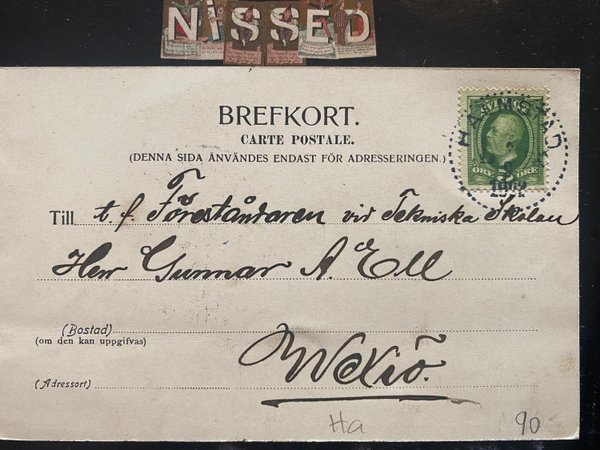 NiSSED
BREFKORT.
CARTE POSTALE.
(DENNA SIDA ANVÄNDES ENDAST FÖR ADRESSERINGEN.)
HALMSTAD
1902
5
ÖRE ÖRE
Till t. f. Föreståndaren vid Tekniska Skolan
Herr Gunnar A. Ell
(Bostad)
(om den kan uppgifvas)
Wexiö.
(Adressort)
Ha
90-